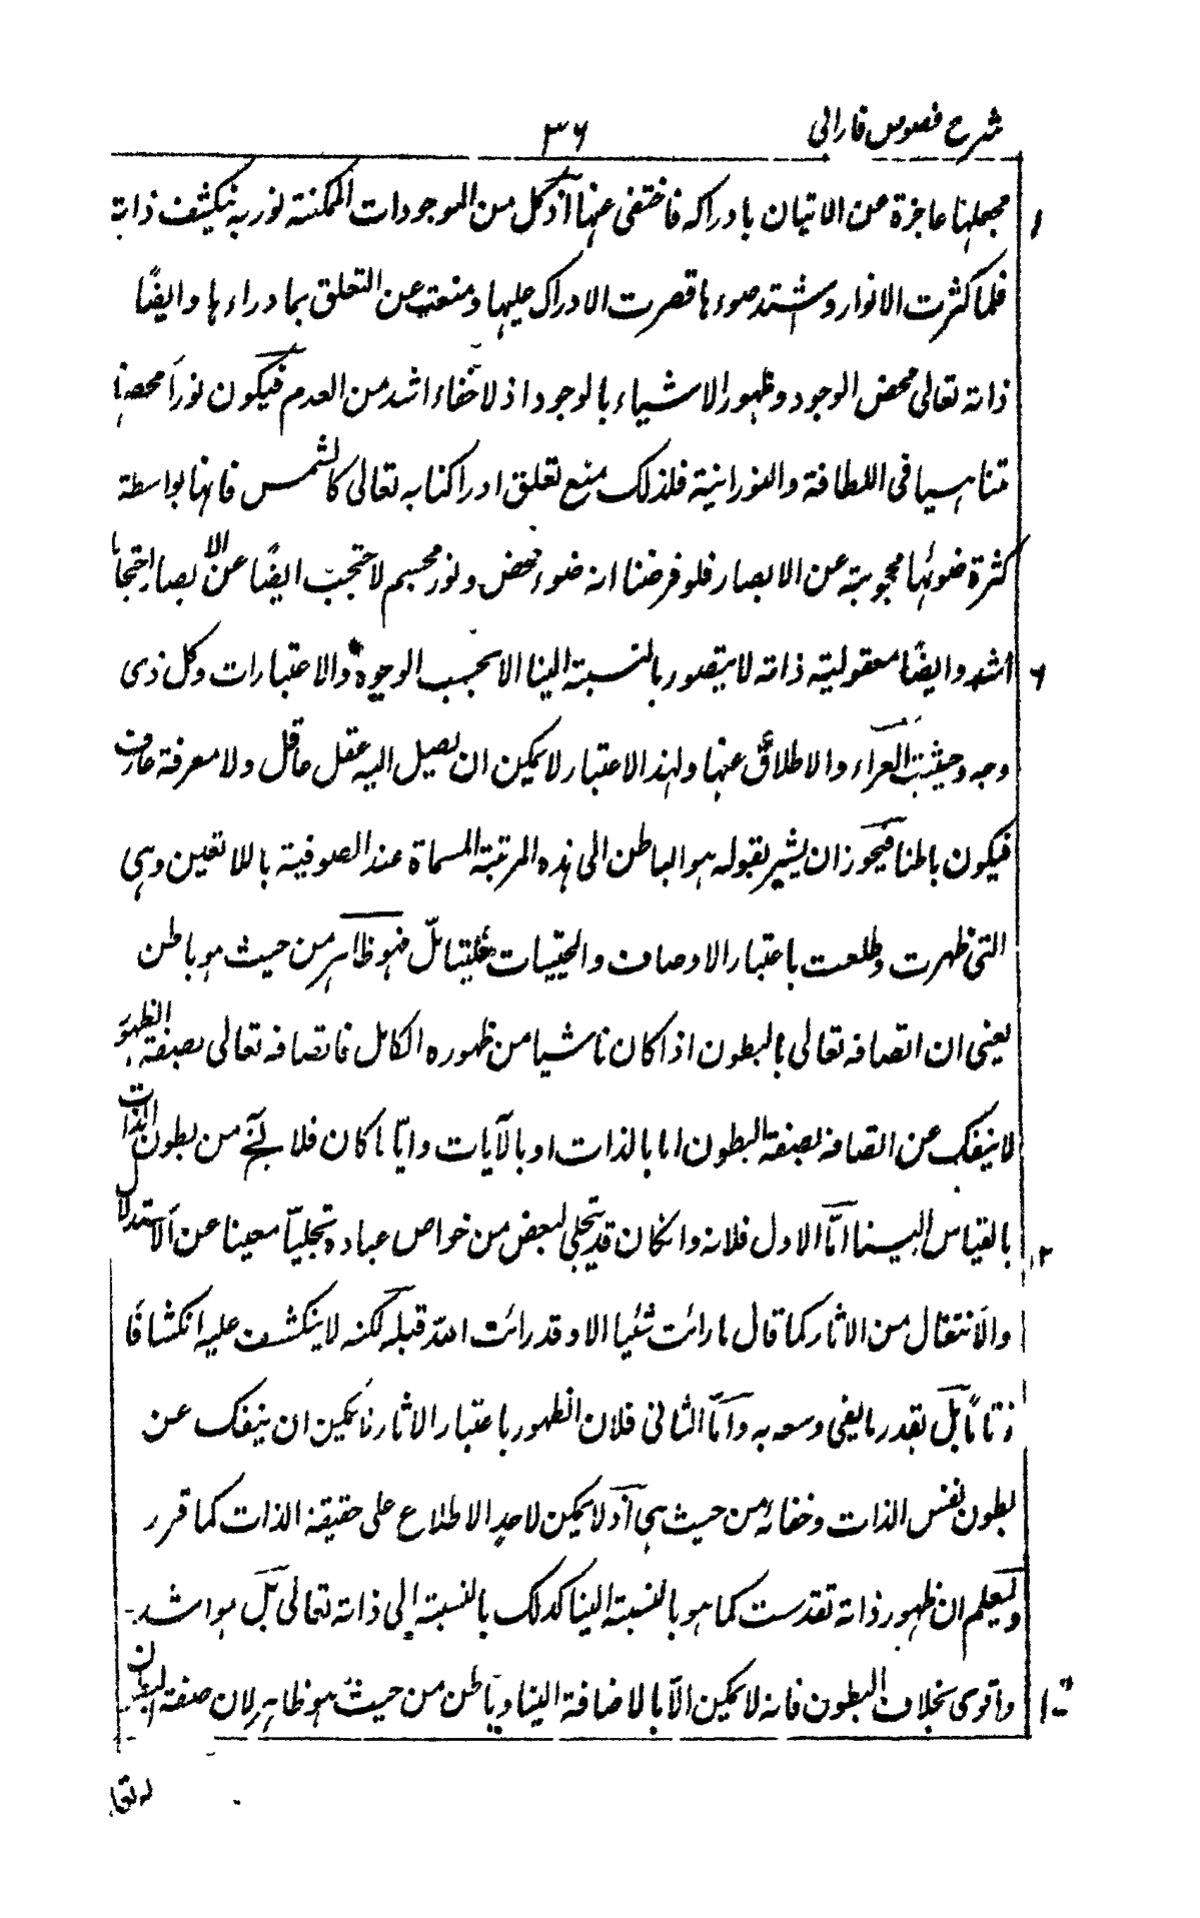 شرح فصوص فارابى
٣٦
مجعلها عاجزة عن الاتيان بادراكه فاختفى عنها اذ كل من الموجودات الممكنة نور به ينكشف ذاته
فلما كثرت الانوار وشتد ضوءها قصرت الادراك عليها ومنعت عن التعلق بما وراءها وايضًا
ذاته تعالى محض الوجود وظهور الاشياء بالوجود اذ لا خفاء اشد من العدم فيكون نورًا محضا
متناهيا فى اللطافة والنورانية فلذلك منع تعلق ادراكنا به تعالى كالشمس فانها بواسطة
كثرة ضوئها محجوبة عن الابصار فلو فرضنا انه ضوء محض ونور مجسم لاحتجب ايضًا عن الابصار احتجابا
اشد وايضًا معقولية ذاته لا يتصور بالنسبة الينا الا بحسب الوجوه والاعتبارات وكل ذى
وجه وحيثية العراء والاطلاق عنها ولهذا الاعتبار لا يمكن ان يصل اليه عقل عاقل ولا معرفة عارف
فيكون باطنا فيجوز ان يشير بقوله هو الباطن الى هذه المرتبة المسماة عند الصوفية باللاتعين وهى
التى ظهرت وطلعت باعتبار الاوصاف والحيثيات فليتامل فهو ظاهر من حيث هو باطن
يعنى ان اتصافه تعالى بالبطون اذا كان ناشيا من ظهوره الكامل فاتصافه تعالى بصفة الظهور
لا ينفك عن اتصافه بصفة البطون اما بالذات او بالآيات وايّا ما كان فلا يخ من بطون الذات
بالقياس الينا امّا الاول فلانه وان كان قد يتجلى لبعض من خواص عباده تجليّا معينا عن الاستدلال
والانتقال من الاثار كما قال ما رائت شئيا الا وقد رائت الله قبله لكنه لا ينكشف عليه انكشافًا
تامًا بل بقدر ما يفى وسعه به وامّا الثانى فلان الظهور باعتبار الاثار ما يمكن ان ينفك عن
بطون نفس الذات وخفائه من حيث هى اذ لا يمكن لاحد الاطلاع على حقيقة الذات كما قرر
وليعلم ان ظهور ذاته تقدست كما هو بالنسبة الينا كذلك بالنسبة إلى ذاته تعالى بل هو اشد
واقوى بخلاف البطون فانه لا يمكن الّا بالاضافة الينا وباطن من حيث هو ظاهر لان صفة البطون
له تعا